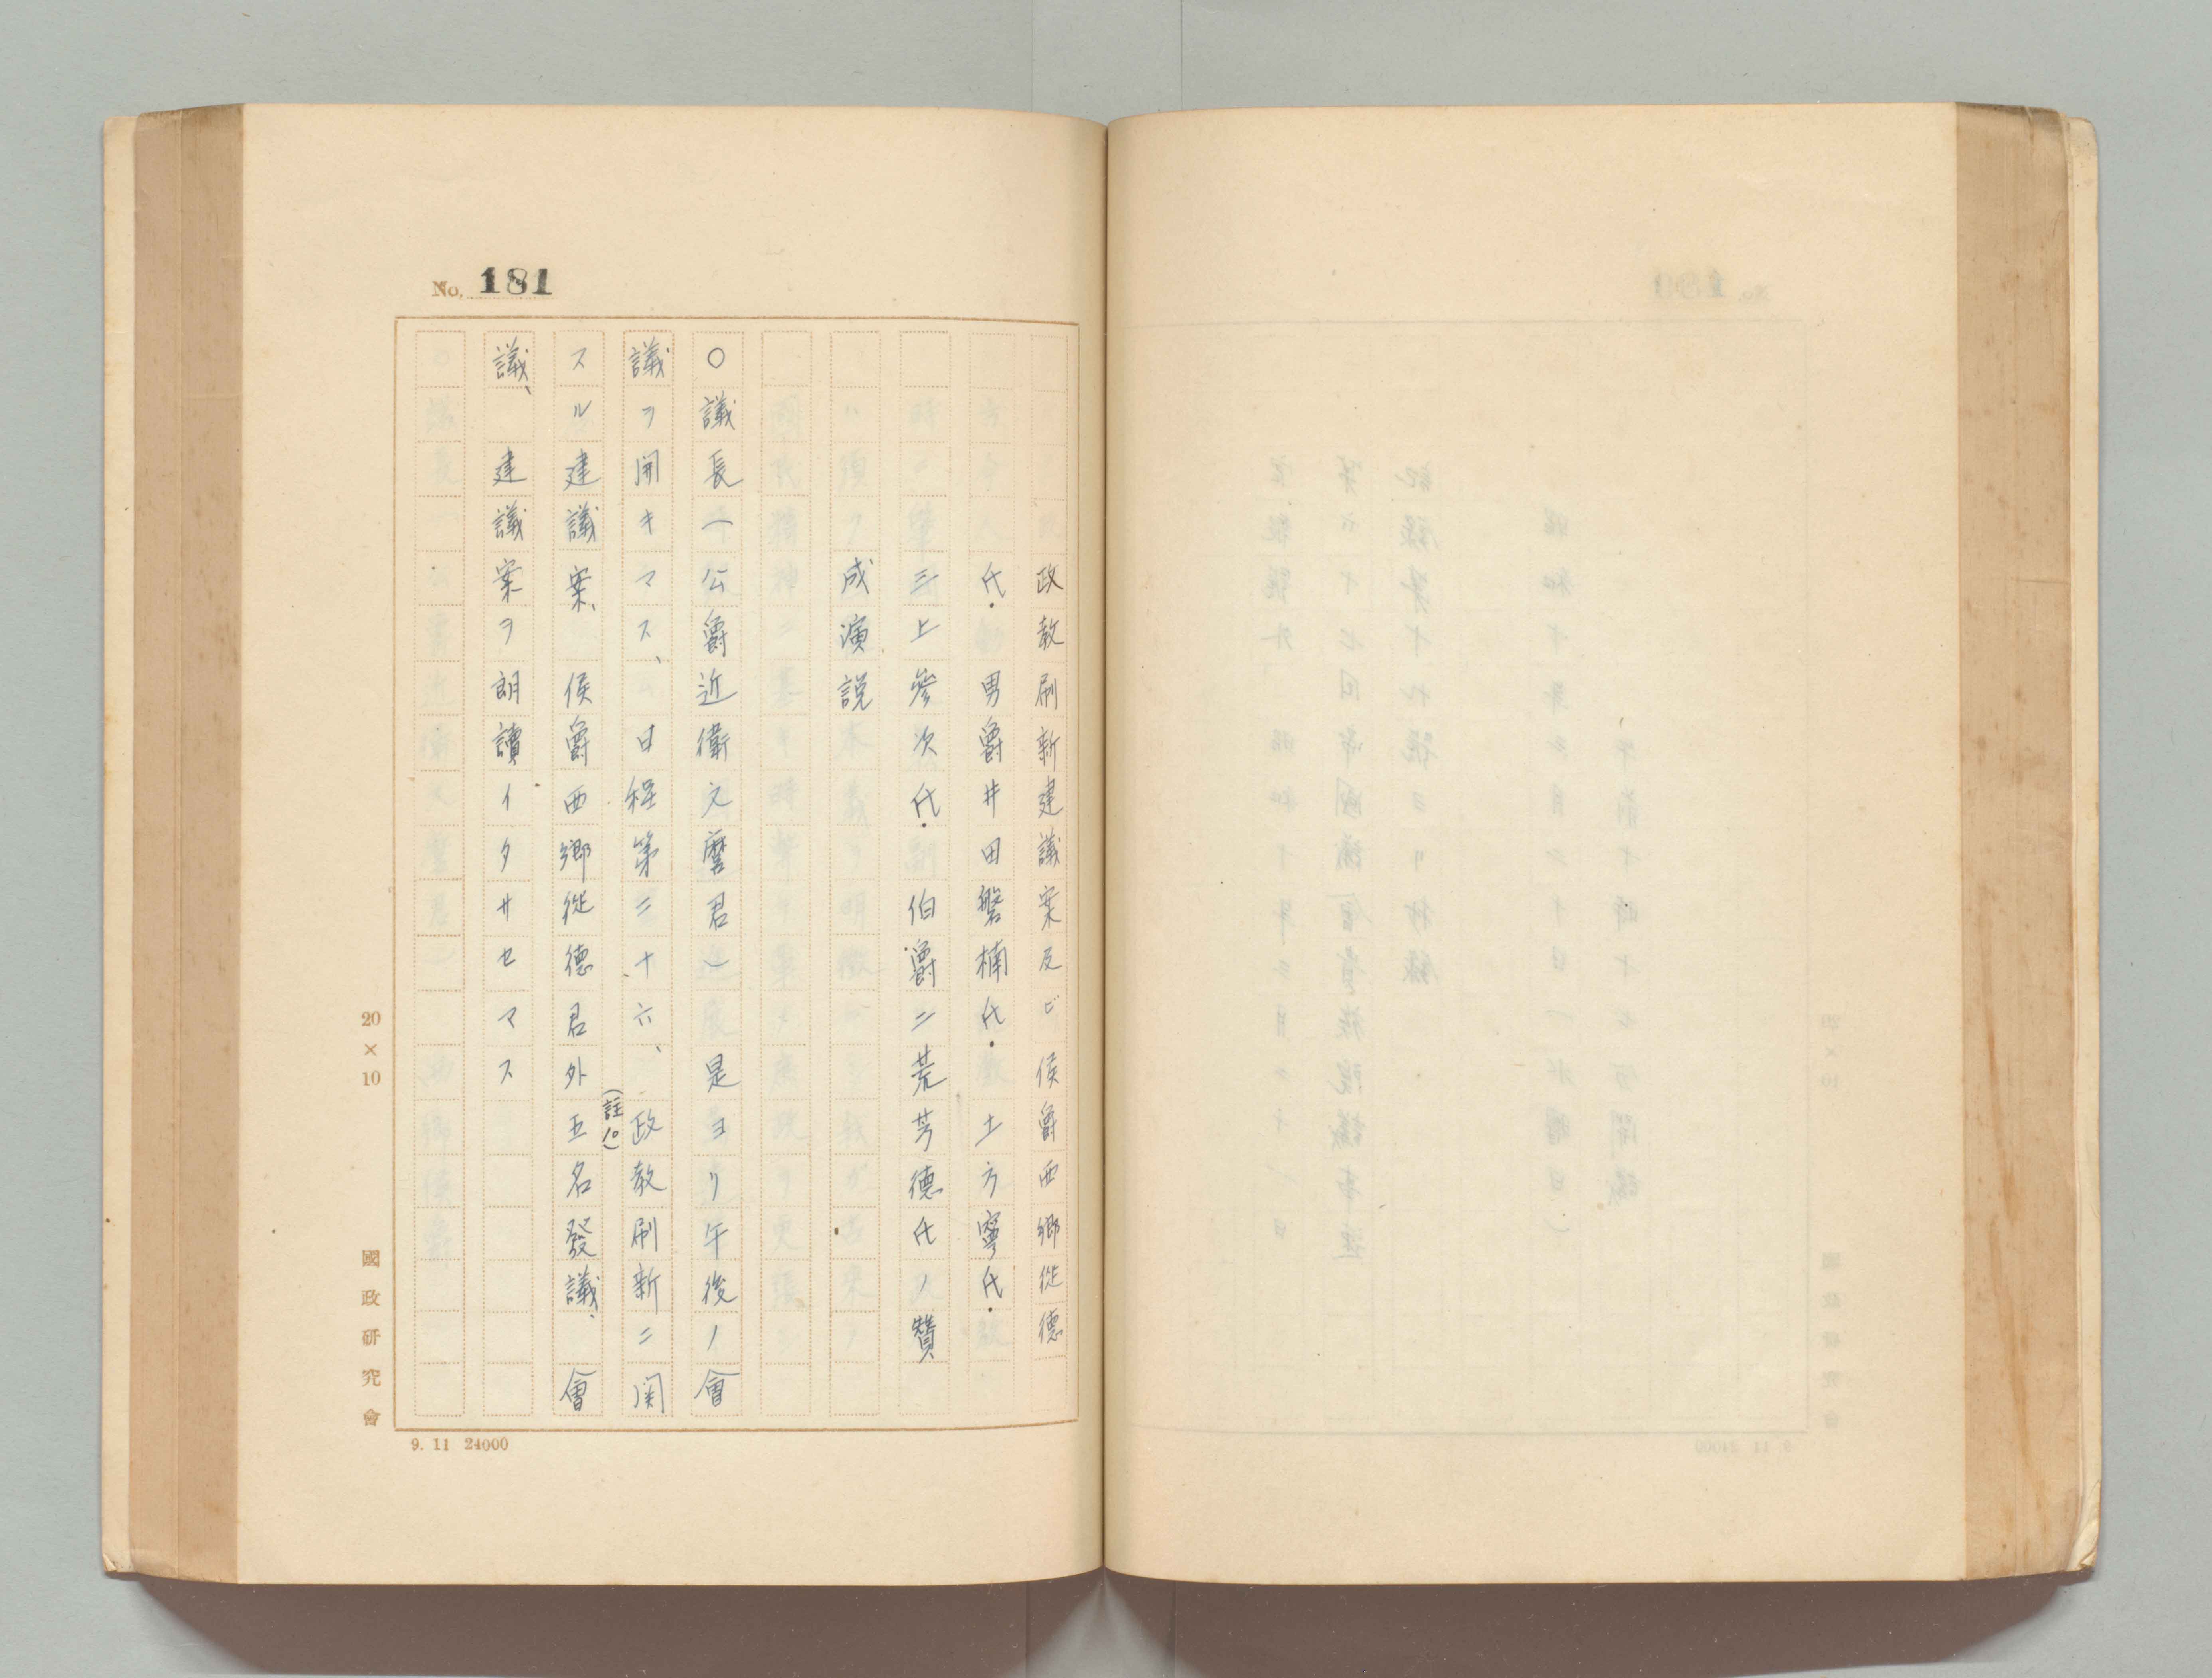 No. 181
政教刷新建議案及ビ侯爵西郷従德
氏・男爵井田磐楠氏・土方寧氏・
三上參次氏・伯爵二荒芳德氏ノ贊
成演説
○議長(公爵近衞文麿君) 是ヨリ午後ノ會
議ヲ開キマス、 日程第三十六、 政教刷新ニ関
(註10)
スル建議案、 侯爵西郷従德君外五名發議、 會
議、 建議案ヲ朗讀イタサセマス
20×10
國政研究會
9. 11 24000